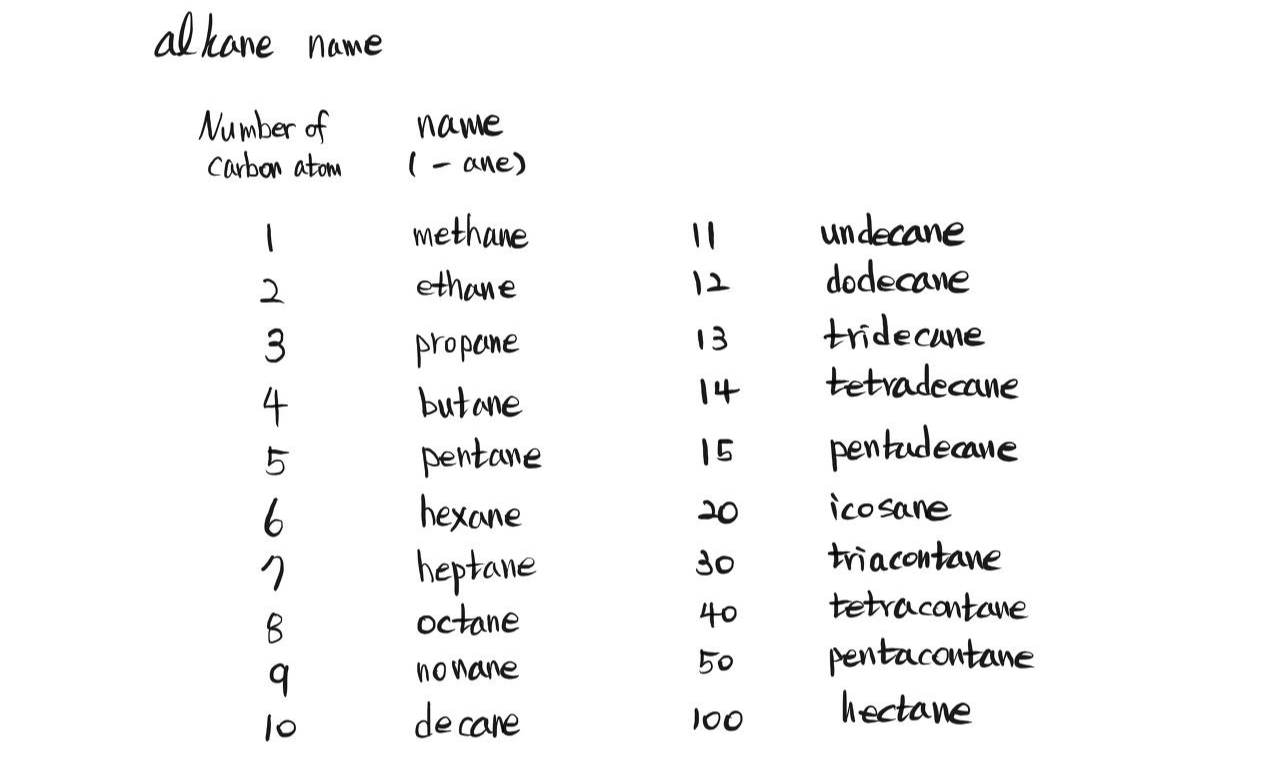 alkane name
Number of carbon atom name (-ane)
1 methane 11 undecane
2 ethane 12 dodecane
3 propane 13 tridecane
4 butane 14 tetradecane
5 pentane 15 pentadecane
6 hexane 20 icosane
7 heptane 30 triacontane
8 octane 40 tetracontane
9 nonane 50 pentacontane
10 decane 100 hectane